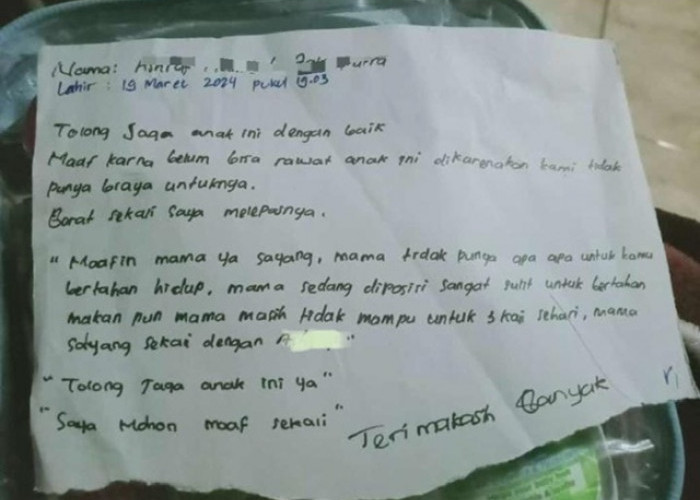 Nama:
Lahir : 19 Maret 2024 pukul 19.03
Tolong Jaga anak ini dengan baik
Maaf karna belum bisa rawat anak ini dikarenakan kami tidak
punya biaya untuknya.
Berat sekali saya melepasnya.
" Maafin mama ya sayang, mama tidak punya apa apa untuk kamu
bertahan hidup, mama sedang diposisi sangat sulit untuk bertahan
makan pun mama masih tidak mampu untuk 3 kali sehari, mama
sayang sekali dengan A "
" Tolong Jaga anak ini ya "
" Saya Mohon maaf sekali "
Terimakasih Banyak